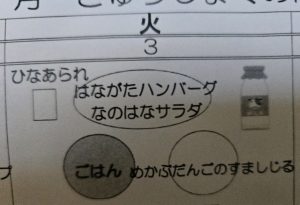 火
3
ひなあられ
はながたハンバーグ
なのはなサラダ
ごはん めかぶだんごのすましじる